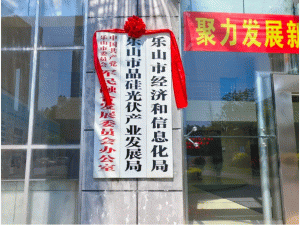 乐山市经济和信息化局
乐山市晶硅光伏产业发展局
中国共产党
乐山市委员会
军民融合发展委员会办公室
聚力发展新